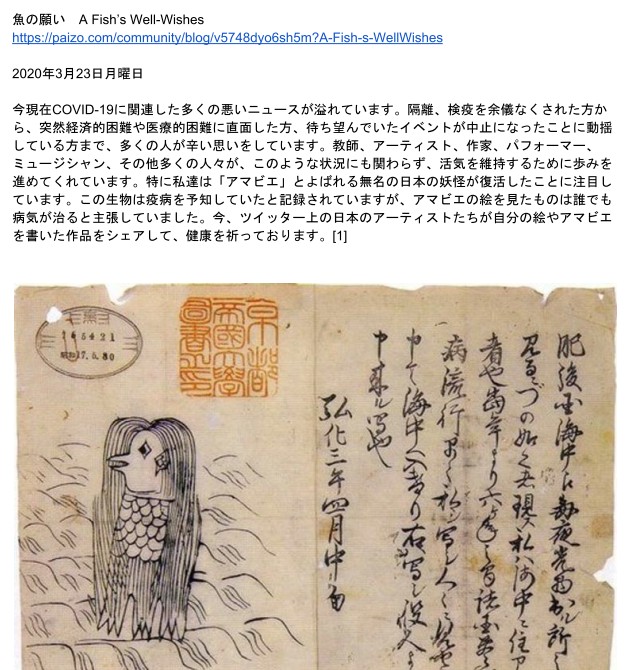 魚の願い　A Fish's Well-Wishes
https://paizo.com/community/blog/v5748dyo6sh5m?A-Fish-s-WellWishes
2020年3月23日月曜日
今現在COVID-19に関連した多くの悪いニュースが溢れています。隔離、検疫を余儀なくされた方か
ら、突然経済的困難や医療的困難に直面した方、待ち望んでいたイベントが中止になったことに動揺
している方まで、多くの人が辛い思いをしています。教師、アーティスト、作家、パフォーマー、
ミュージシャン、その他多くの人々が、このような状況にも関わらず、活気を維持するために歩みを
進めてくれています。特に私達は「アマビエ」とよばれる無名の日本の妖怪が復活したことに注目し
ています。この生物は疫病を予知していたと記録されていますが、アマビエの絵を見たものは誰でも
病気が治ると主張していました。今、ツイッター上の日本のアーティストたちが自分の絵やアマビエ
を書いた作品をシェアして、健康を祈っております。[1]
京都
帝國大學
圖書之印
肥後国海中え毎夜光物出ル所之
者也當年より六ヶ年之間諸国
病流行早々私ヲ写シ人々ニ見セ
申て海中へ入けり右写シ役人より
申来ル写也
弘化三年四月中旬